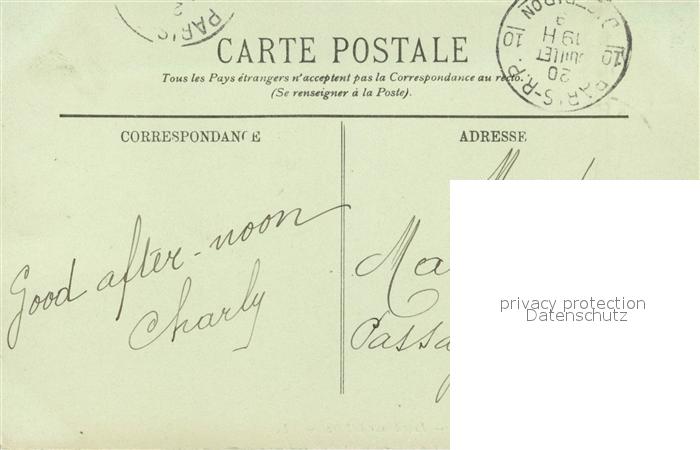 PARIS
CARTE POSTALE
Tous les Pays étrangers n'acceptent pas la Correspondance au recto.
(Se renseigner à la Poste).
PARIS-R.P.
10 10
20
JUILLET
19 H
CORRESPONDANCE
ADRESSE
Good after-noon
Charly
Ma
Passa
privacy protection
Datenschutz